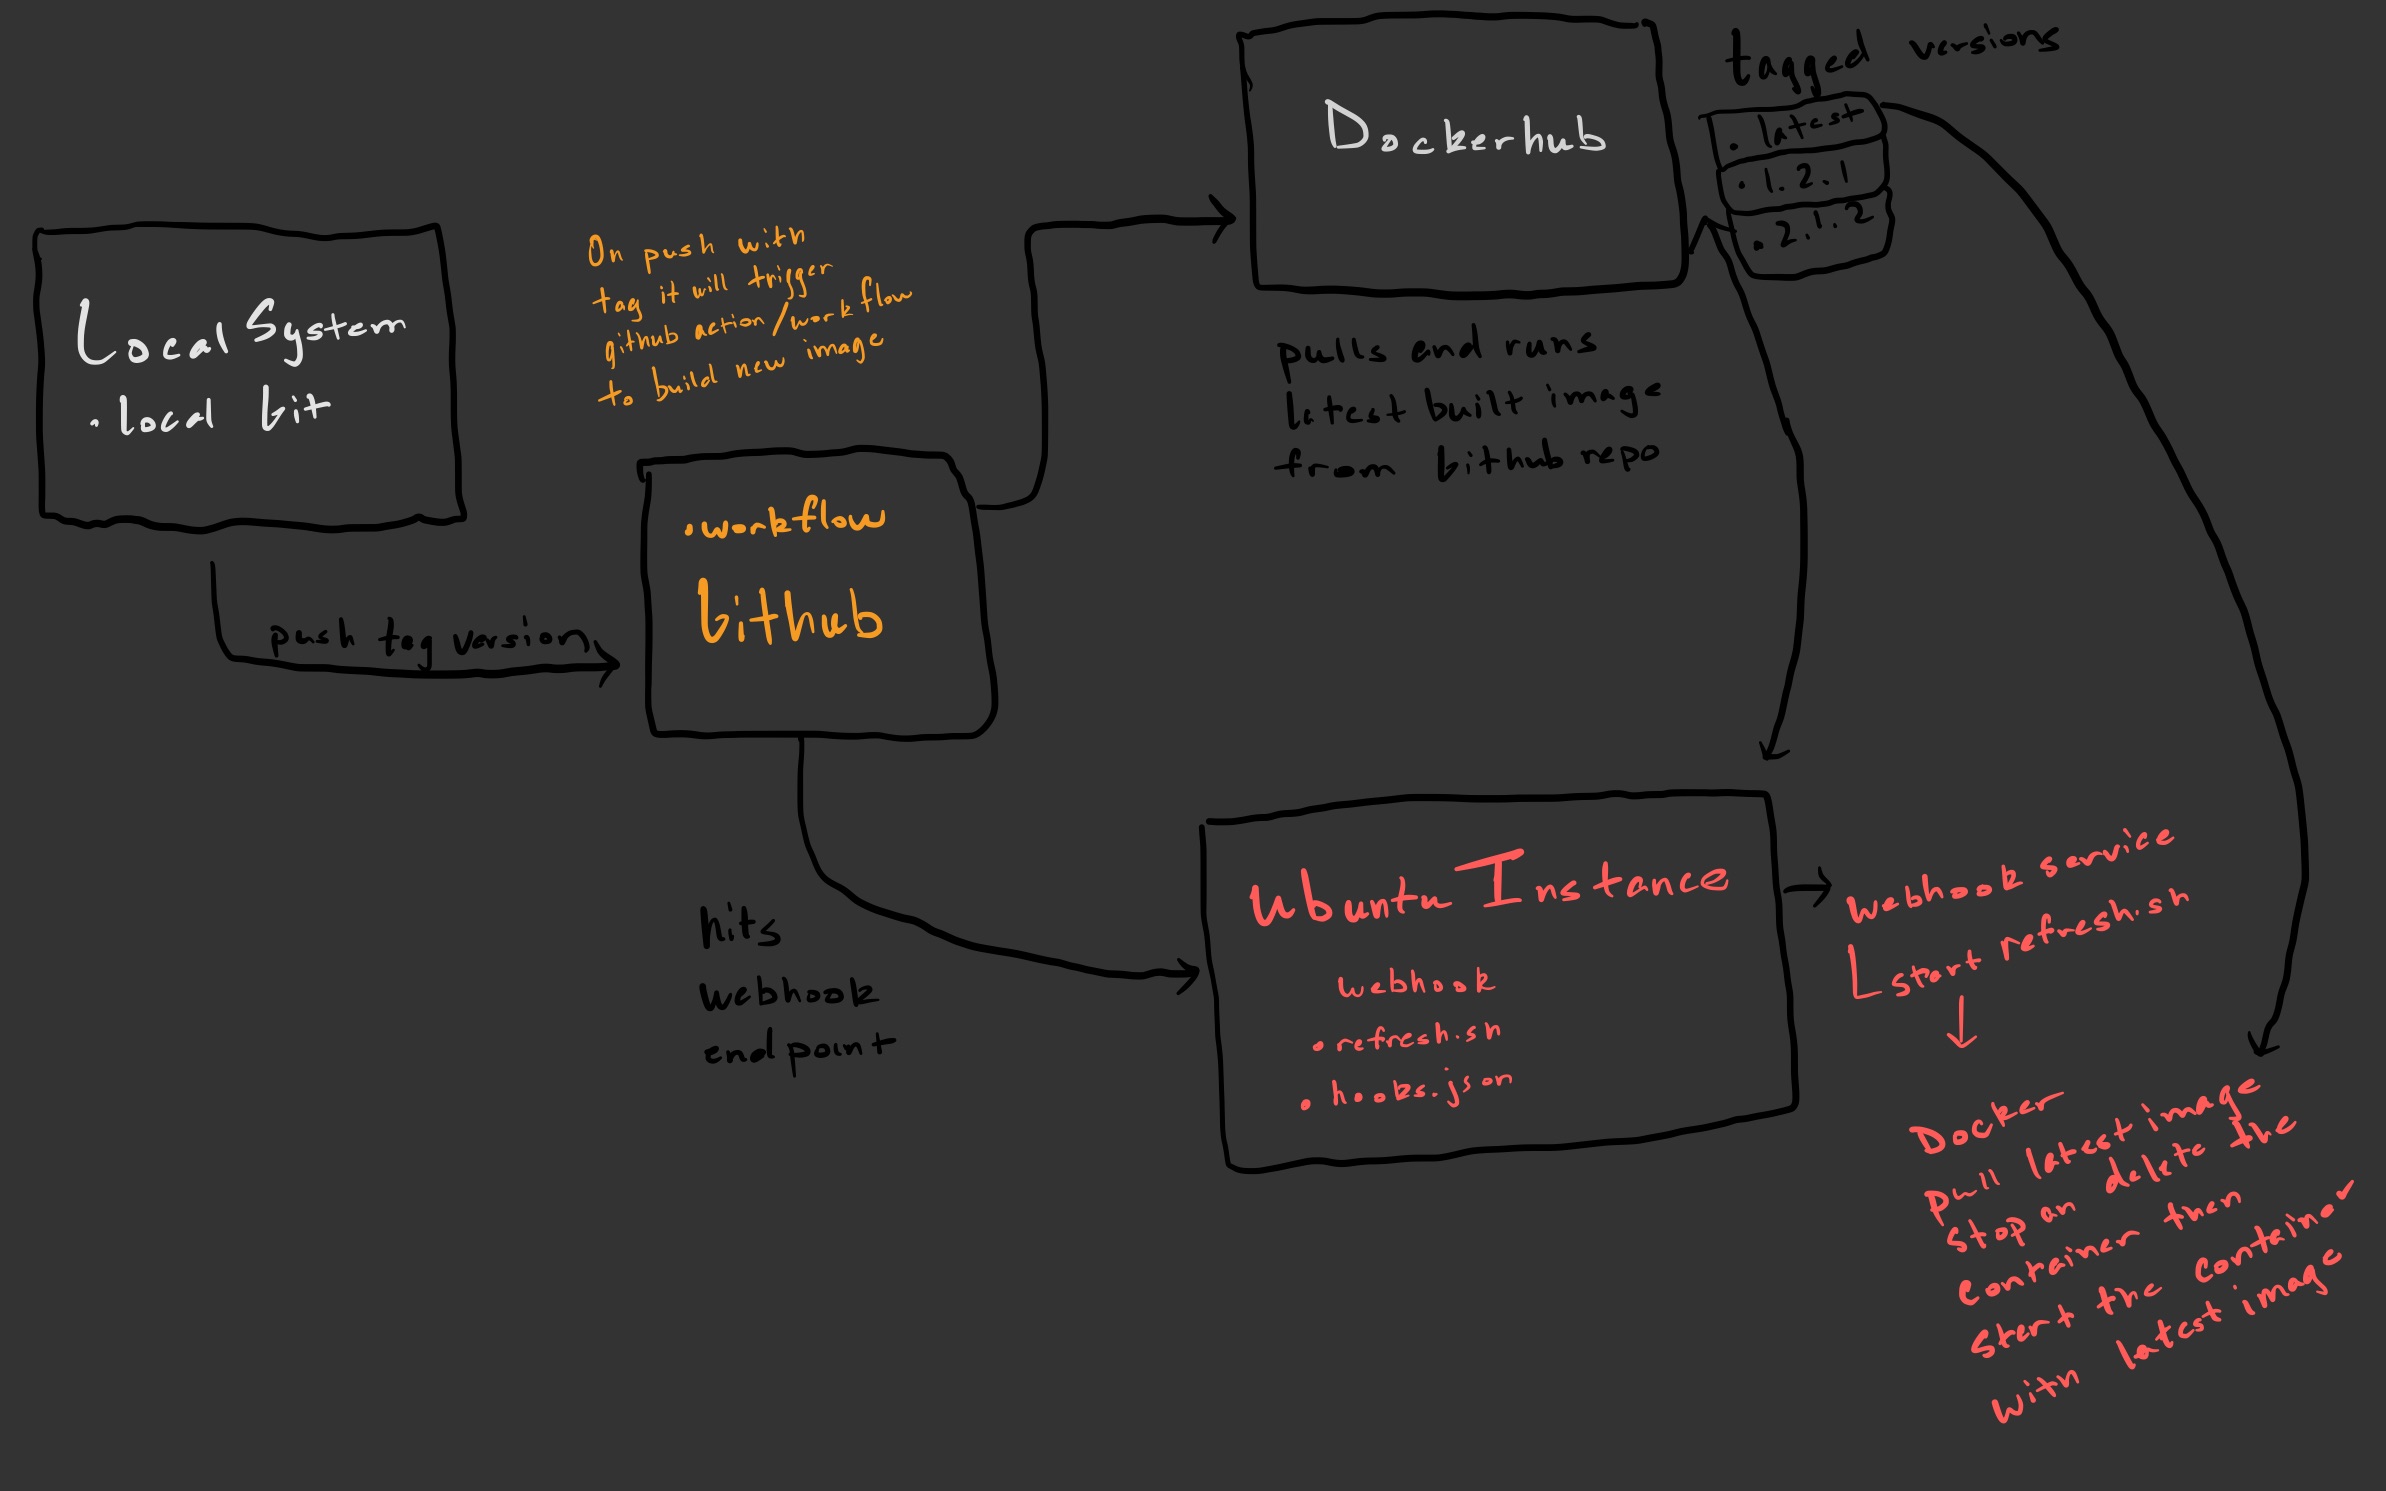 Local System
• local Git
On push with
tag it will trigger
github action/workflow
to build new image
push tag version
• workflow
Github
Dockerhub
tagged versions
• latest
• 1.2.1
• 2.1.2
pulls and runs
latest built image
from Github repo
hits
webhook
endpoint
Ubuntu Instance
webhook
• refresh.sh
• hooks.json
webhook service
start refresh.sh
Docker
Pull latest image
stop an delete the
container then
start the container
with latest image